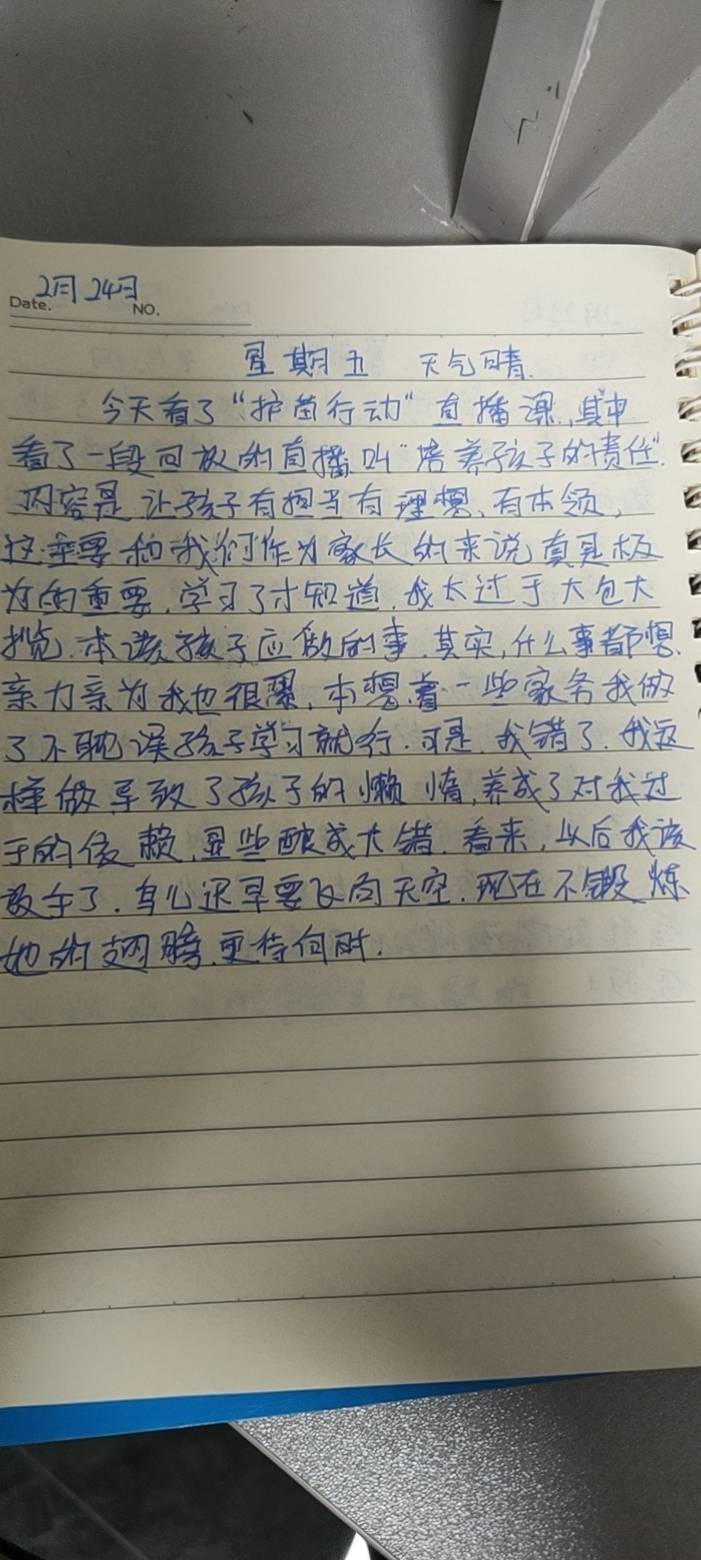 2月24日
Date. NO.
星期五 天气晴.
今天看了“护苗行动”直播课,其中
看了一段回放的直播叫“培养孩子的责任”.
内容是让孩子有担当有理想、有本领,
这主要和我们作为家长的来说真是极
为的重要.学习了才知道.我太过于大包大
揽.本该孩子应做的事.其实,什么事都想
亲力亲为我也很累.本想着一些家务我做
了不耽误孩子学习就行.可是.我错了.我这
样做导致了孩子的懒惰,养成了对我过
于的依赖,显些酿成大错.看来,以后我该
放手了.鸟儿迟早要飞向天空.现在不锻炼
她的翅膀.更待何时.